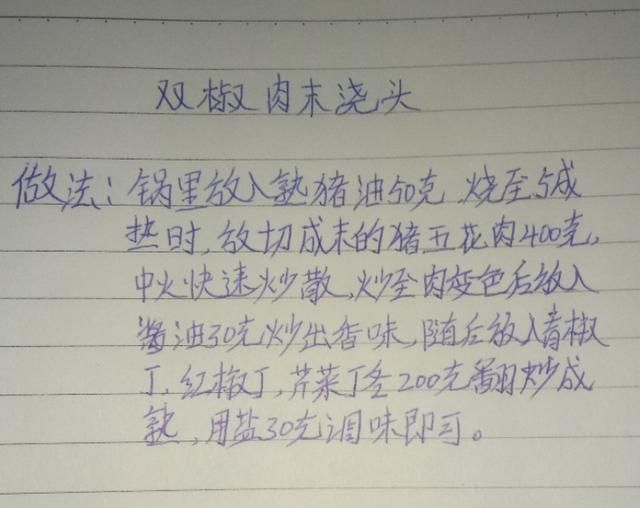 双椒肉末浇头
做法：锅里放入熟猪油50克，烧至5成
热时，放切成末的猪五花肉400克，
中火快速炒散，炒至肉变色后放入
酱油30克炒出香味，随后放入青椒
丁，红椒丁，芹菜丁各200克翻炒成
熟，用盐30克调味即可。